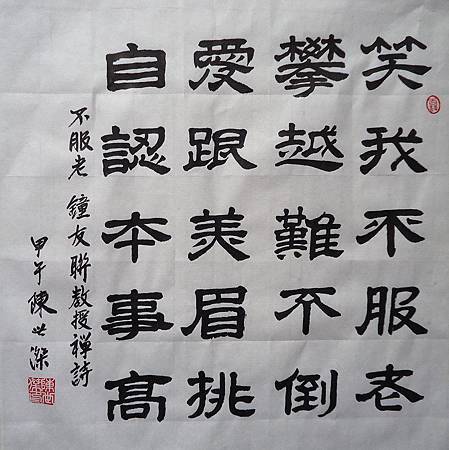 笑我不服老
攀越難不倒
愛跟美眉挑
自認本事高
不服老 鐘友聯教授禪詩
甲午陳世深